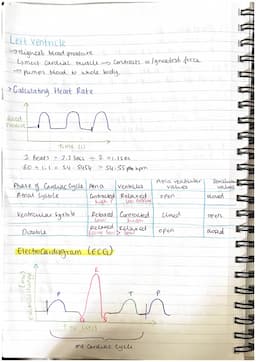 Left Ventricle
→ Highest blood pressure
Lomost cardiac muscle → contracts w/greatest force
→ pumps blood to whole body
> Calculating Heart Rate
Blood
Pressure
Time (s)
2 Beats = 2.2 secs ÷ 2 = 1.1 sec
60 ÷ 1.1 = 54.5454 = 54.55 bpm
Phase of Cardiac Cycle Atria Ventricles Atrio ventricular valves Semilunar valves
Atrial Systole Contracted Relaxed open closed
Ventricular Systole Relaxed Contracted closed open
Diastole Relaxed Relaxed open closed
ElectroCardiogram (ECG)
P R T P
one Cardiac Cycle